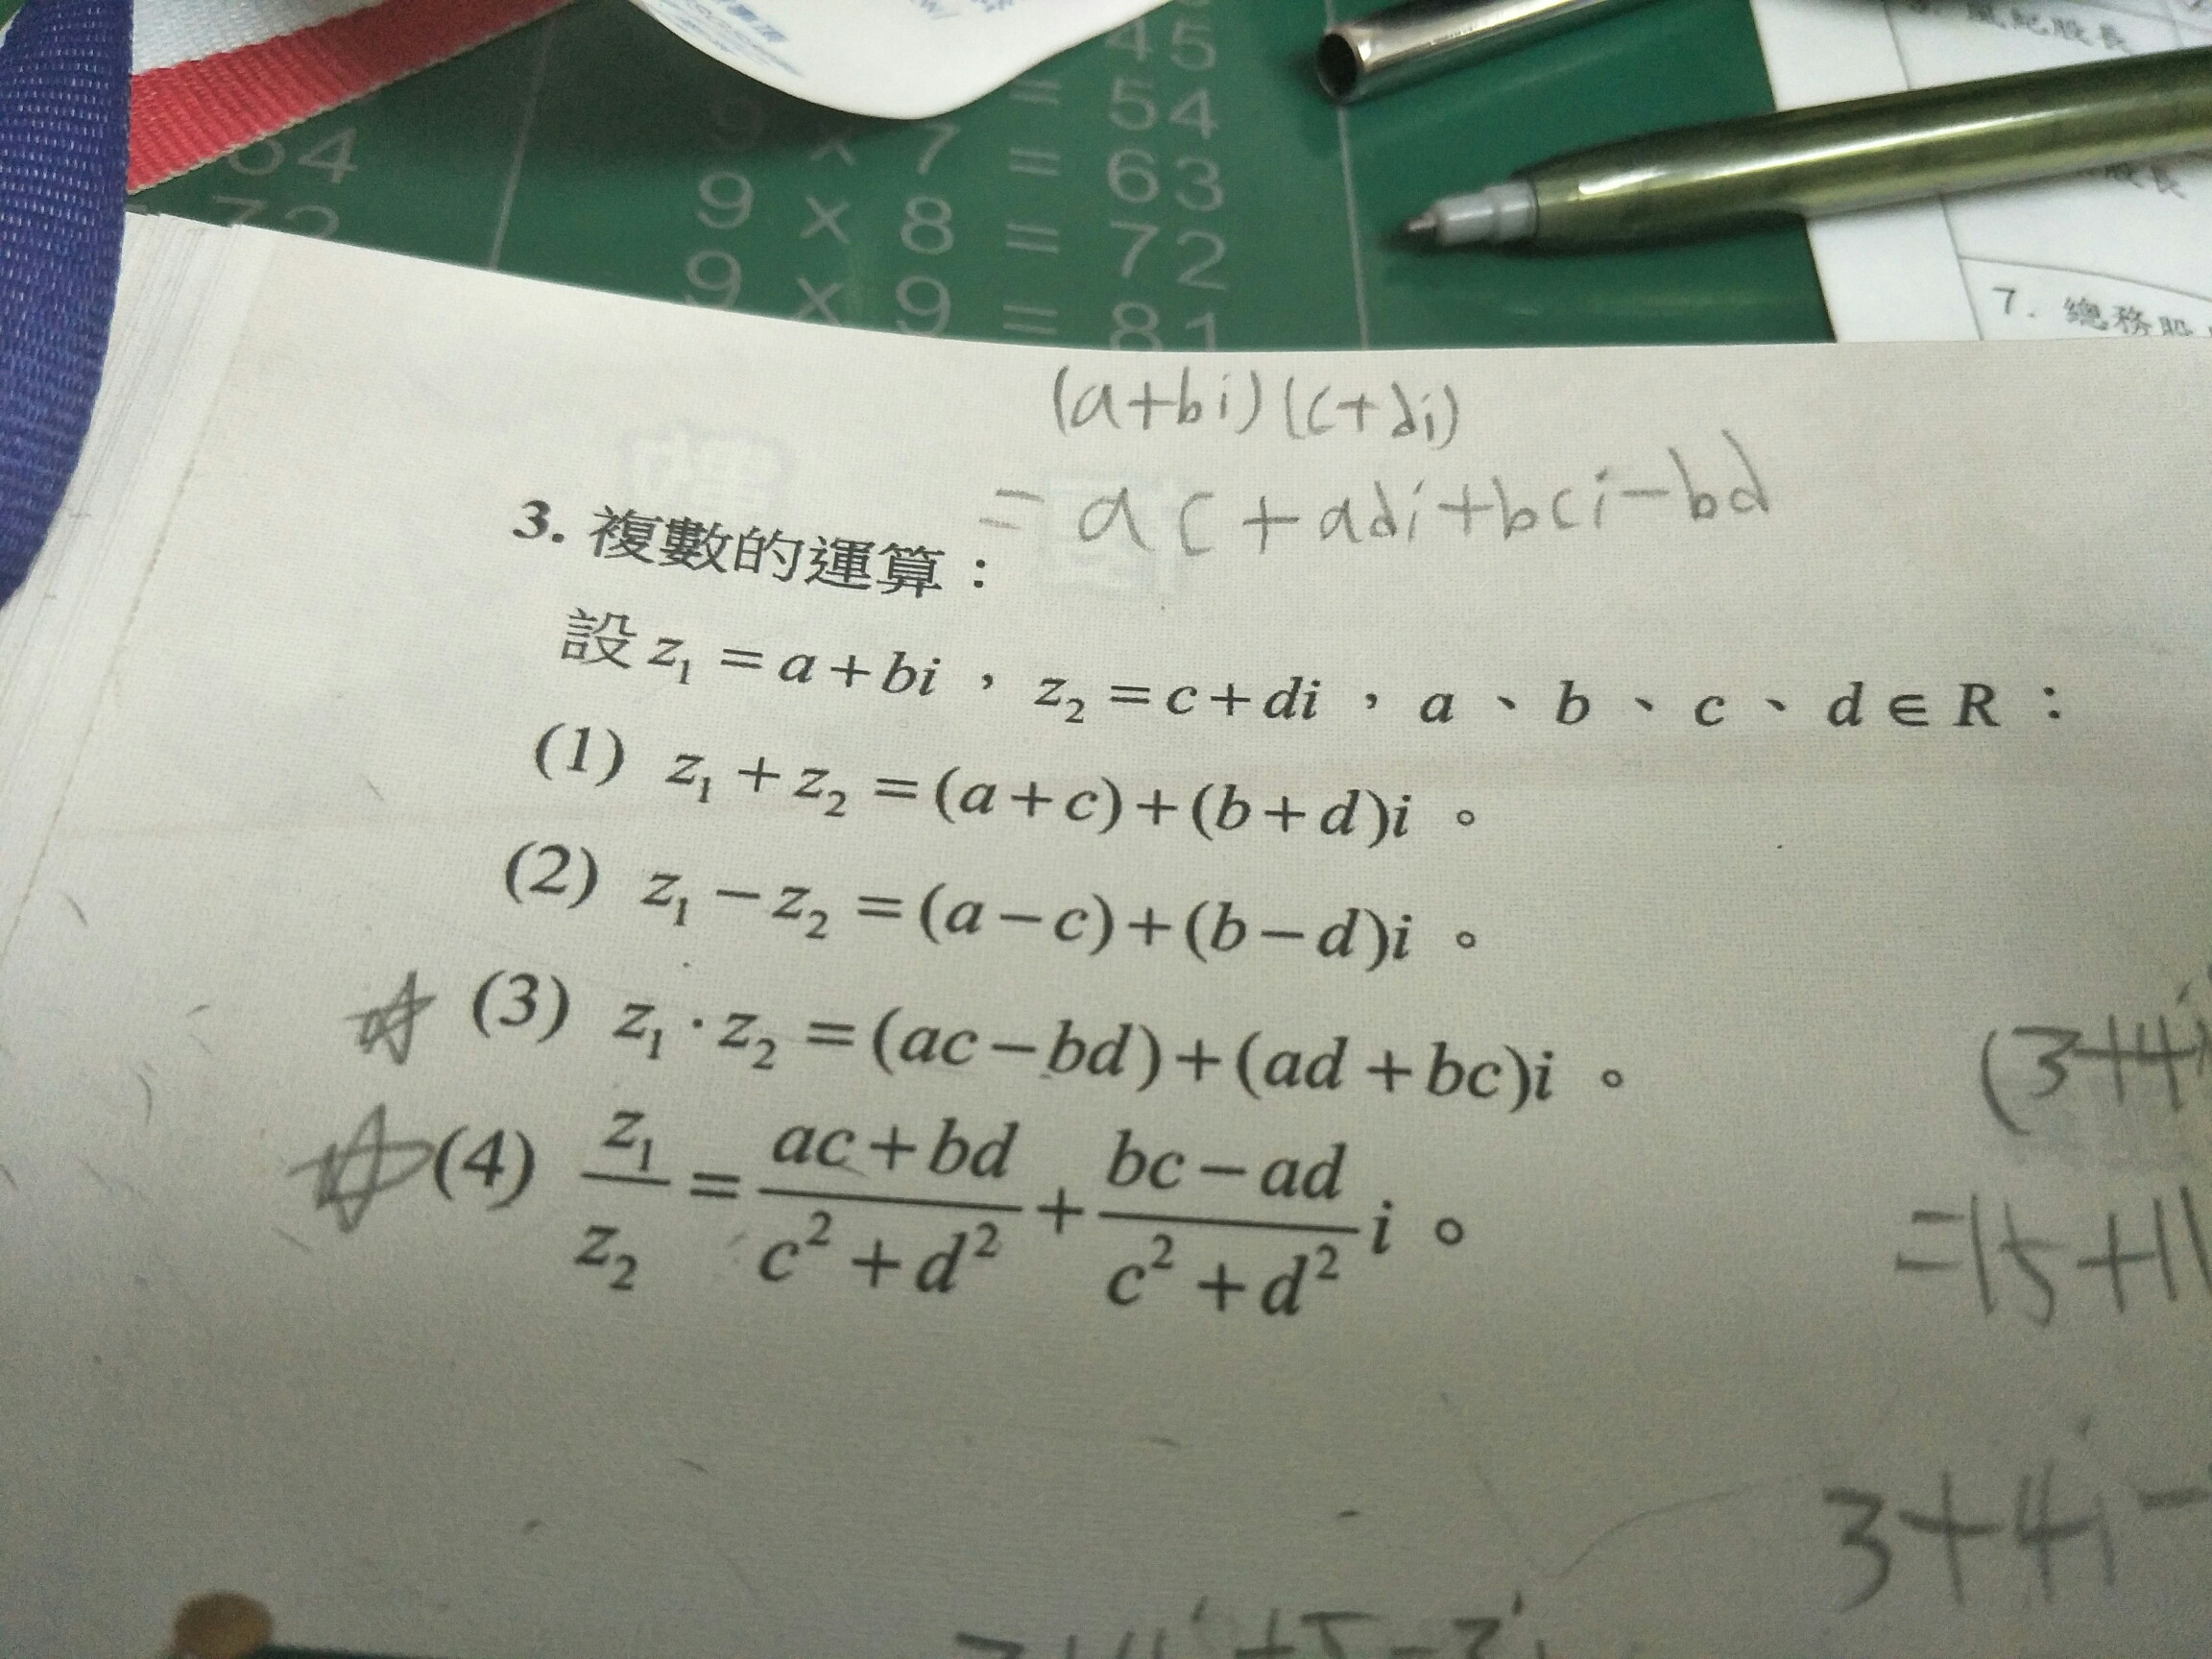 45
= 54
9 × 7 = 63
9 × 8 = 72
9 × 9 = 81
64
72
風紀股長
股長
7. 總務股
(a+bi)(c+di)
= ac+adi+bci-bd
3. 複數的運算：
設 z₁ = a+bi，z₂ = c+di，a、b、c、d ∈ R：
(1) z₁+z₂ = (a+c)+(b+d)i。
(2) z₁−z₂ = (a−c)+(b−d)i。
(3) z₁·z₂ = (ac−bd)+(ad+bc)i。
(4) z₁/z₂ = (ac+bd)/(c²+d²) + (bc−ad)/(c²+d²) i。
(3+4i
=15+11
3+4i-